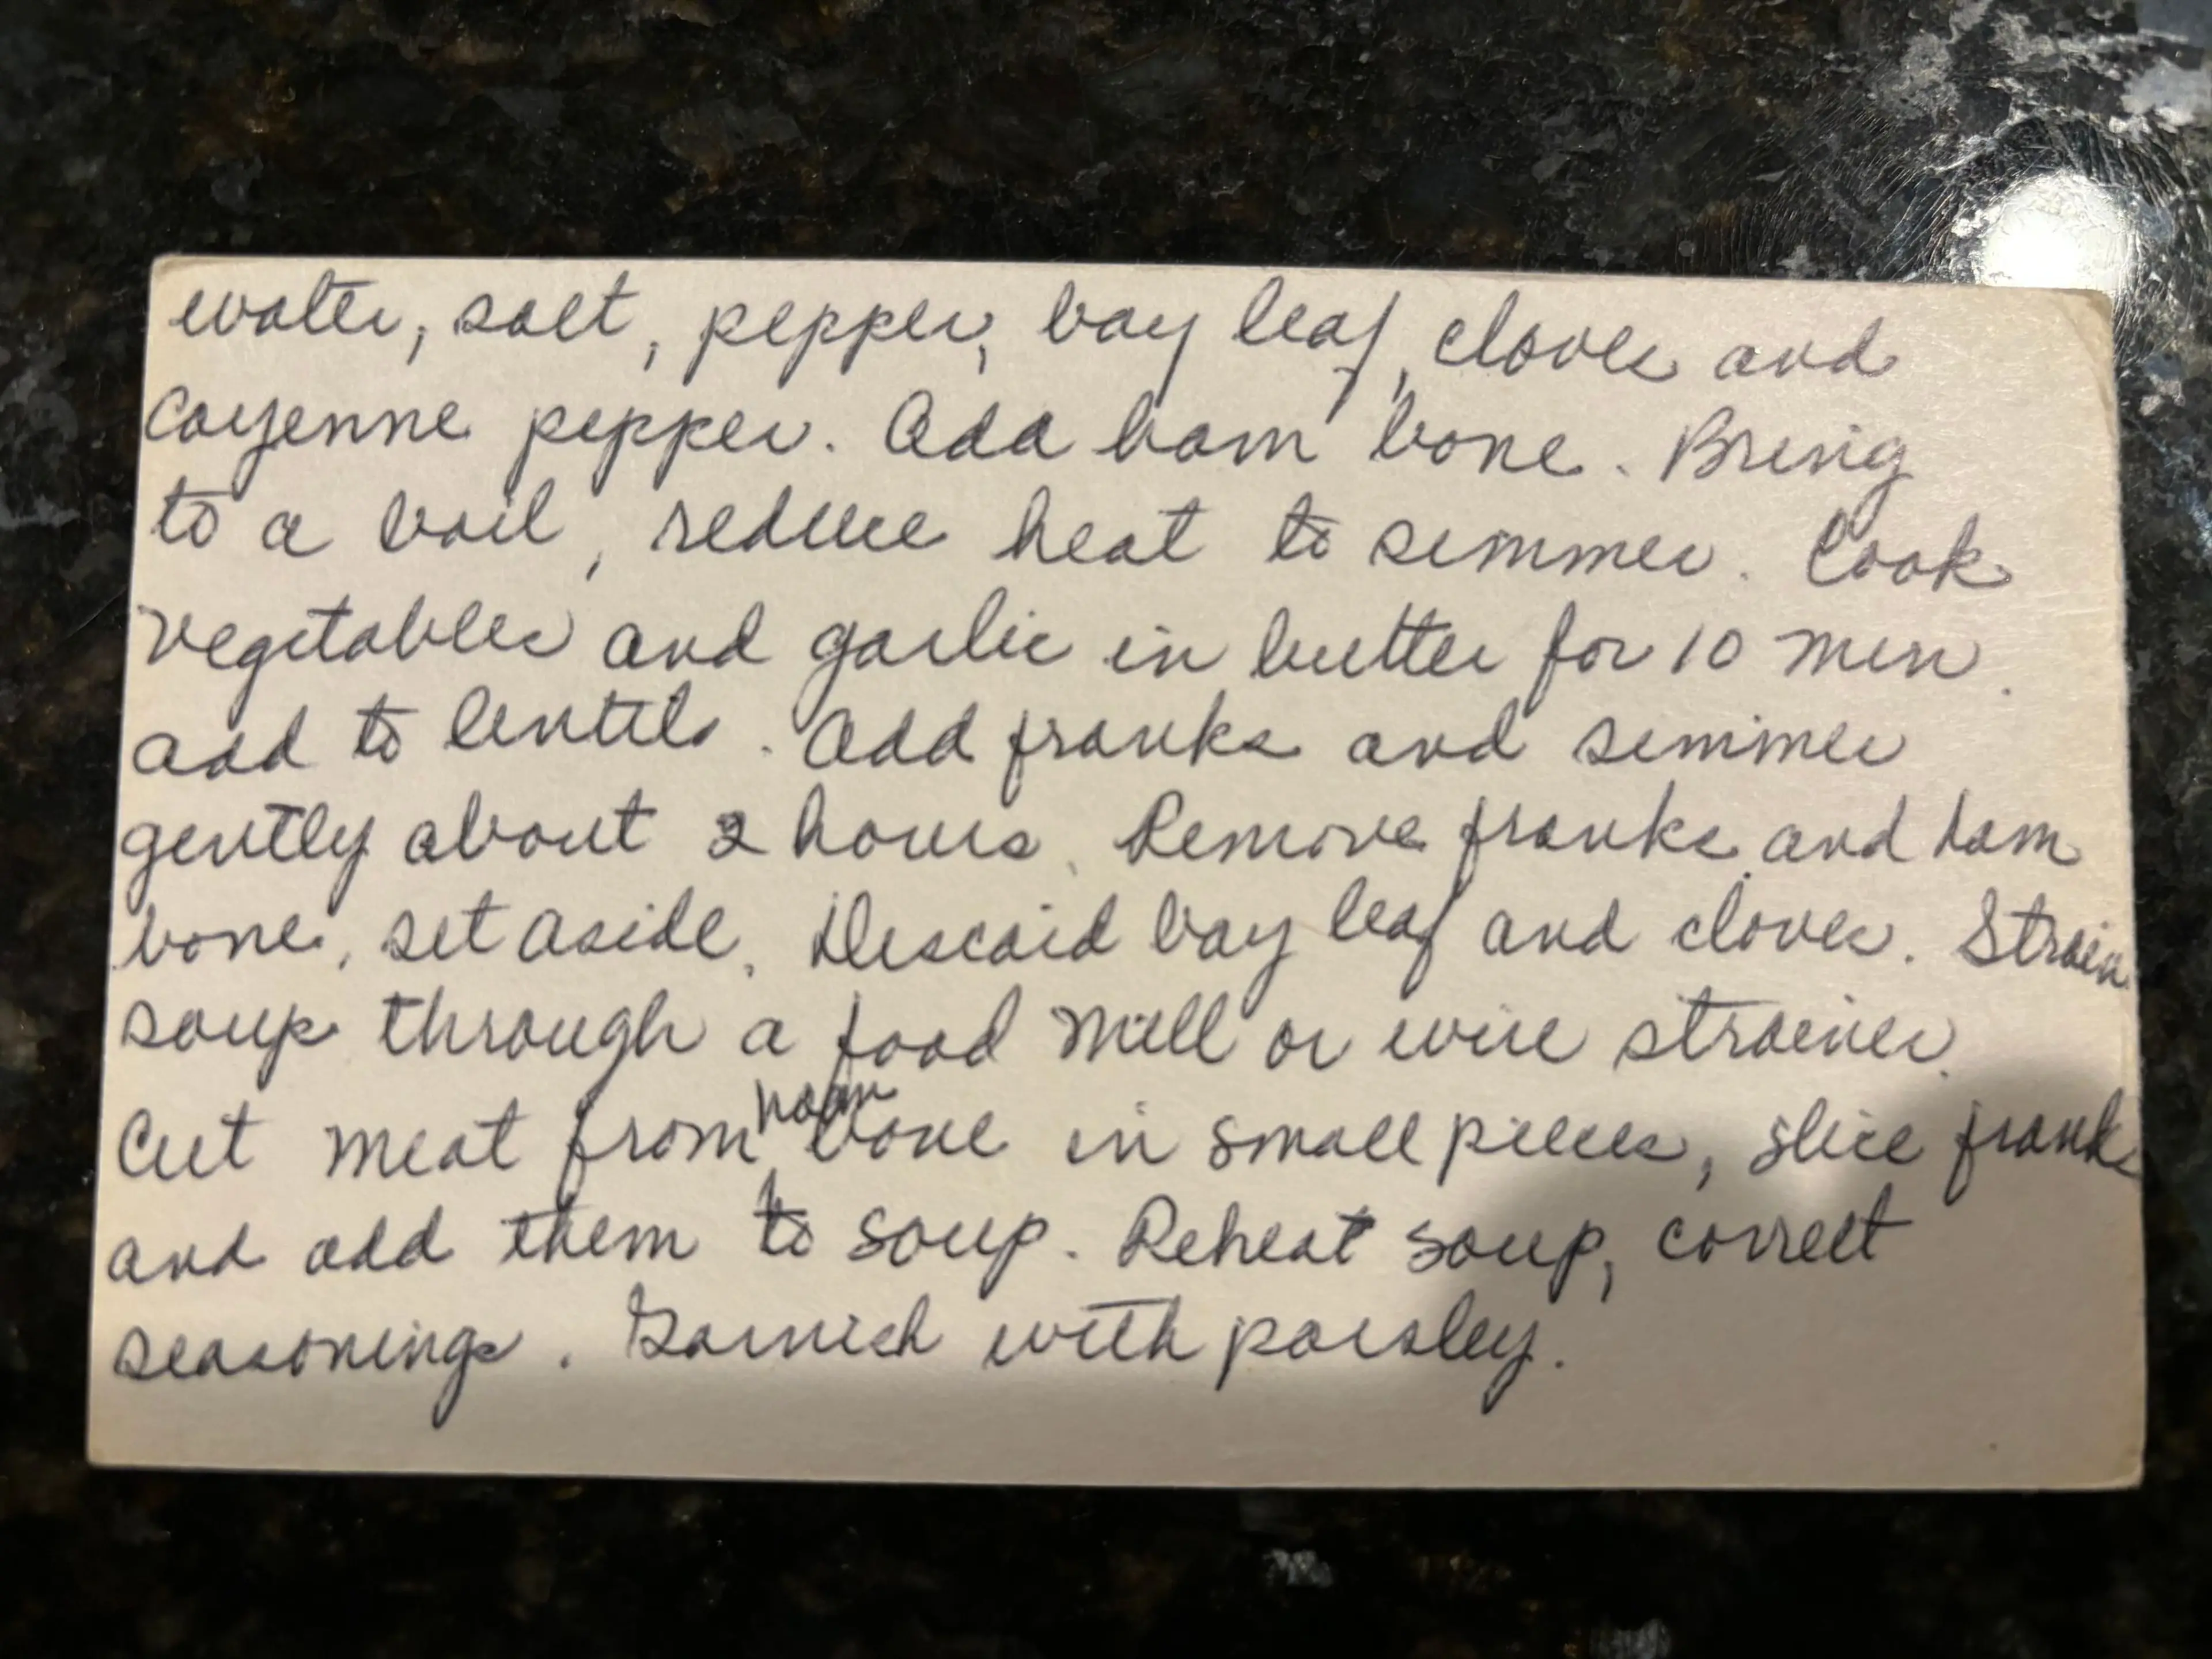 water, salt, pepper, bay leaf, cloves and
Cayenne pepper. Add ham bone. Bring
to a boil, reduce heat to simmer. Cook
vegetables and garlic in butter for 10 min.
add to lentils. Add franks and simmer
gently about 2 hours. Remove franks and ham
bone, set aside. Discard bay leaf and cloves. Strain
soup through a food mill or wire strainer.
Cut meat from ham bone in small pieces, slice franks
and add them to soup. Reheat soup, correct
seasonings. Garnish with parsley.